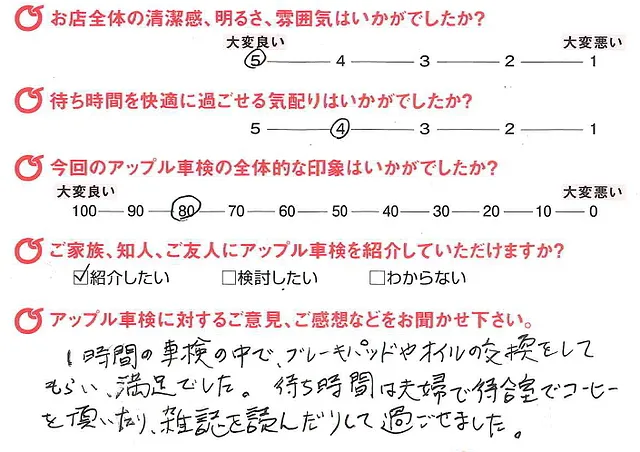 お店全体の清潔感、明るさ、雰囲気はいかがでしたか?
大変良い 大変悪い
5 4 3 2 1
待ち時間を快適に過ごせる気配りはいかがでしたか?
5 4 3 2 1
今回のアップル車検の全体的な印象はいかがでしたか?
大変良い 大変悪い
100 90 80 70 60 50 40 30 20 10 0
ご家族、知人、ご友人にアップル車検を紹介していただけますか?
☑紹介したい □検討したい □わからない
アップル車検に対するご意見、ご感想などをお聞かせ下さい。
1時間の車検の中で、ブレーキパッドやオイルの交換をして
もらい、満足でした。待ち時間は夫婦で待合室でコーヒー
を頂いたり、雑誌を読んだりして過ごせました。